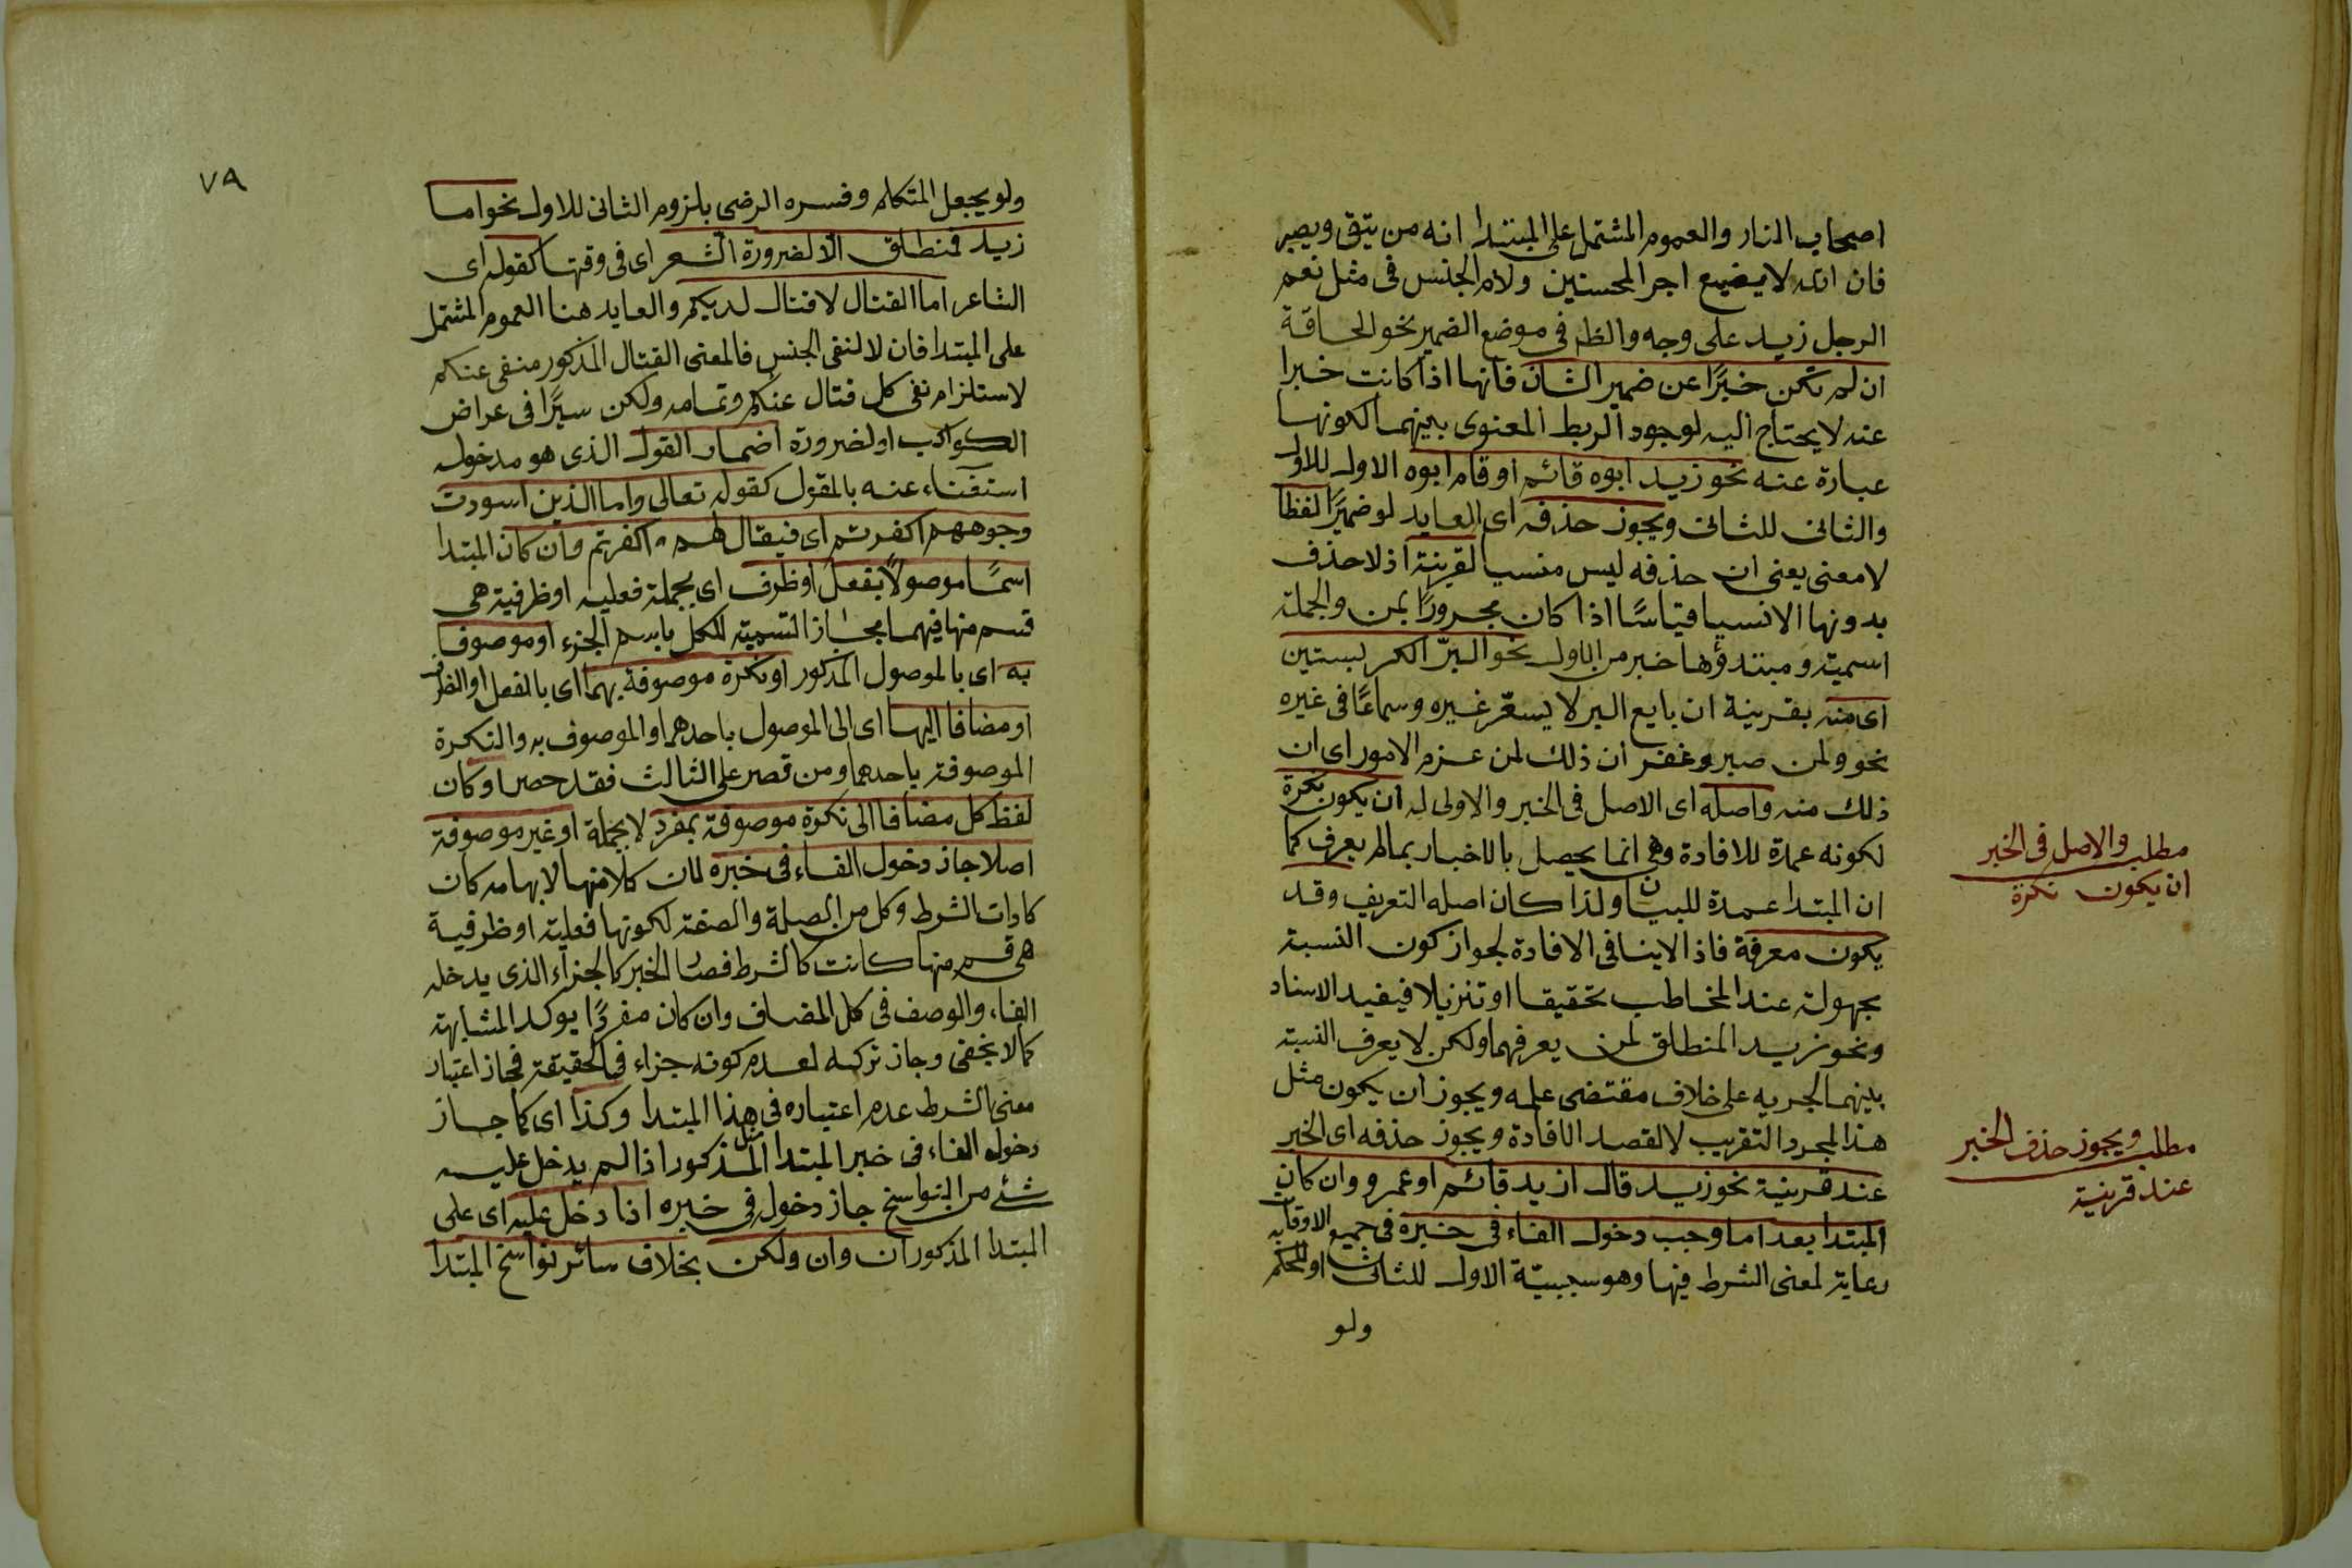 اصحاب النار والعموم المشتمل على المبتدا انه من يتق ويصبر
فان الله لا يضيع اجر المحسنين ولام الجنس فى مثل نعم
الرجل زيد على وجه والظ فى موضع الضمير نحو الحاقة
ان لم تكن خبرًا عن ضمير الشان فانها اذا كانت خبرا
عنه لا يحتاج اليه لوجود الربط المعنوى بينهما لكونها
عبارة عنه نحو زيد ابوه قائم او قام ابوه الاول للاول
والثانى للثانى ويجوز حذفه اى العايد لو ضميرًا لفظا
لا معنى يعنى ان حذفه ليس منسيا لقرينة اذ لا حذف
بدونها الا نسيا قياسًا اذا كان مجرورًا بمن والجملة
اسمية ومبتدؤها خبر من الاول نحو البرّ الكر بستين
اى منه بقرينة ان بايع البر لا يسعّر غيره وسماعًا فى غيره
نحو ولمن صبر وغفر ان ذلك لمن عزم الامور اى ان
ذلك منه واصله اى الاصل فى الخبر والاولى له ان يكون نكرة
لكونه عمدة للافادة وهى انما يحصل بالاخبار بمالم يعرف كما
ان المبتدا عمدة للبيان ولذا كان اصله التعريف وقد
يكون معرفة فاذ الاينافى الافادة لجواز كون النسبة
مجهولة عند المخاطب تحقيقا او تنزيلا فيفيد الاسناد
ونحو زيد المنطلق لمن يعرفهما ولكن لا يعرف النسبة
بينهما لجريه على خلاف مقتضى علمه ويجوز ان يكون مثل
هذا لمجرد التقريب لا لقصد الافادة ويجوز حذفه اى الخبر
عند قرينة نحو زيد قال ازيد قائم او عمرو وان كان
المبتدا بعد اما وجب دخول الفاء فى خبره فى جميع الاوقات
رعاية لمعنى الشرط فيها وهو سببيّة الاول للثانى او للحكم به
ولو
مطلب والاصل فى الخبر
ان يكون نكرة
مطلب ويجوز حذف الخبر
عند قرينة
٧٩
ولو يجعل المتكلم وفسره الرضى بلزوم الثانى للاول نحو اما
زيد فمنطلق الا لضرورة الشعر اى فى وقتها كقوله اى
الشاعر اما القتال لا قتال لديكم والعايد هنا العموم المشتمل
على المبتدا فان لا لنفى الجنس فالمعنى القتال المذكور منفى عنكم
لاستلزام نفى كل قتال عنكم وتمامه ولكن سيرًا فى عراض
الكواكب او لضرورة اضمار القول الذى هو مدخوله
استغناء عنه بالمقول كقوله تعالى واما الذين اسودت
وجوههم اكفرتم اى فيقال لهم اكفرتم وان كان المبتدا
اسمًا موصولًا بفعل او ظرف اى بجملة فعلية او ظرفية هى
قسم منها فيهما مجاز التسمية للكل باسم الجزء او موصوفا
به اى بالموصول المذكور او نكرة موصوفة بهما اى بالفعل او الظرف
او مضافا اليها اى الى الموصول باحدهما والموصوف به والنكرة
الموصوفة باحدهما ومن قصر على الثالث فقد حصر او كان
لفظ كل مضافا الى نكرة موصوفة بمفرد لا بجملة او غير موصوفة
اصلا جاز دخول الفاء فى خبره لان كلا منها لابهامه كان
كادات الشرط وكل من الصلة والصفة لكونها فعلية او ظرفية
هى قسم منها كانت كالشرط فصار الخبر كالجزاء الذى يدخله
الفاء والوصف فى كل المضاف وان كان مفردًا يوكد المشابهة
كما لا يخفى وجاز تركه لعدم كونه جزاء فى الحقيقة فجاز اعتبار
معنى الشرط عدم اعتباره فى هذا المبتدا وكذا اى كما جاز
دخول الفاء فى خبر المبتدا المذكور اذا لم يدخل عليه
شئ من النواسخ جاز دخوله فى خبره اذا دخل عليه اى على
المبتدا المذكور ان وان ولكن بخلاف سائر نواسخ المبتدا